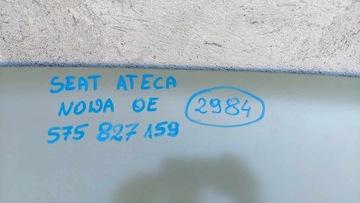 SEAT ATECA
NOWA OE 2984
575 827 159